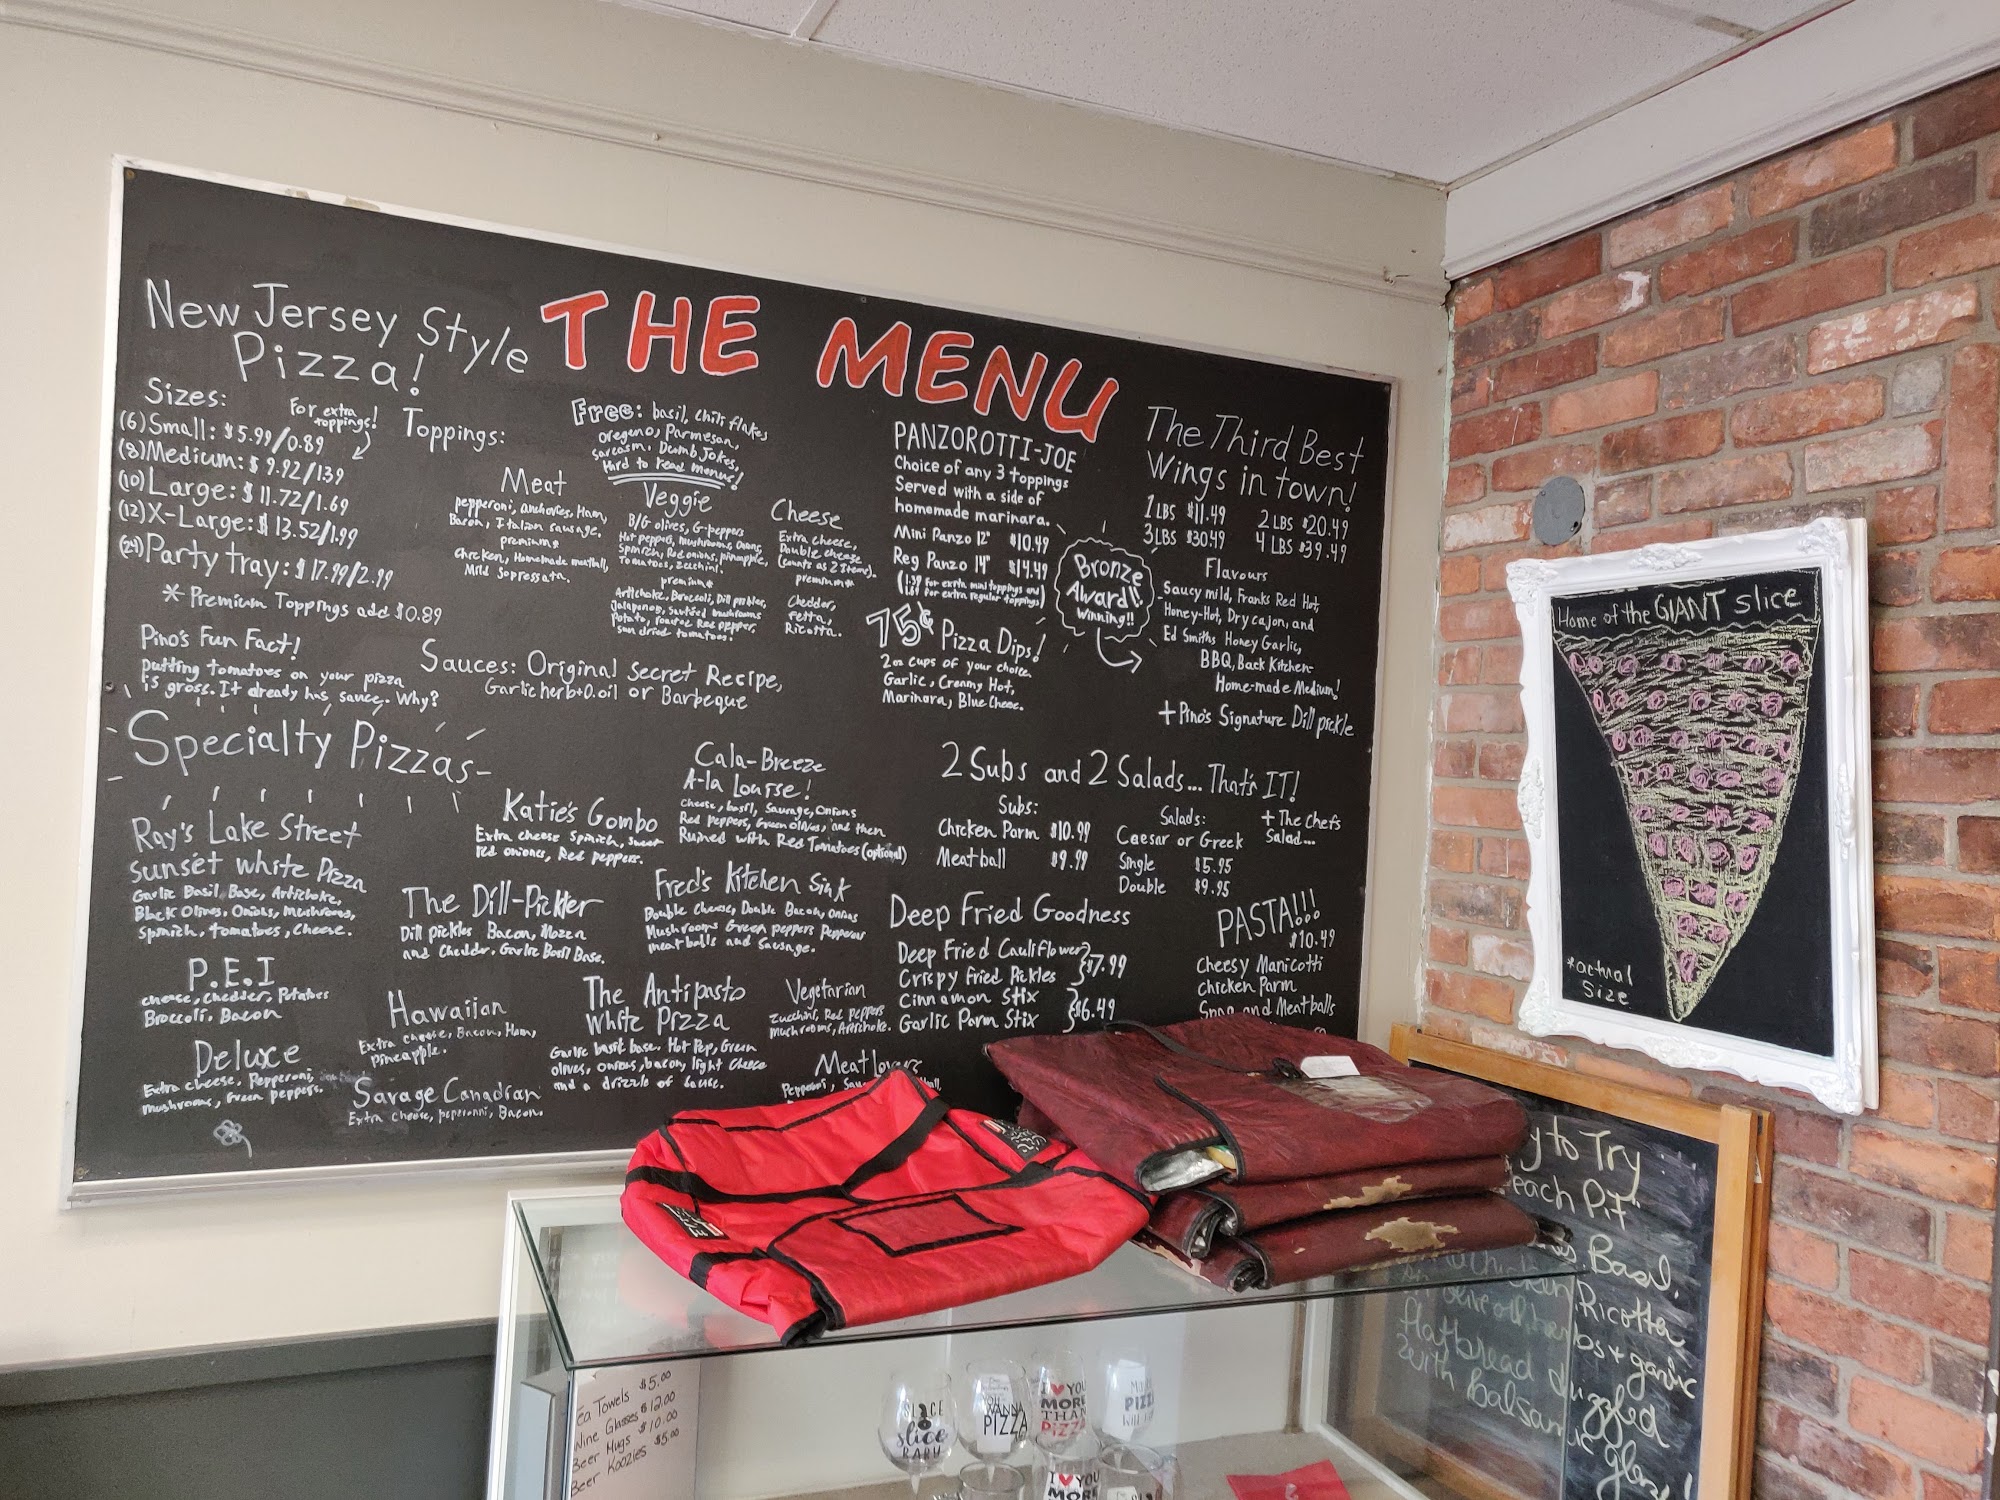 THE MENU
New Jersey Style
Pizza!
Sizes:
For extra
toppings!
(6) Small: $5.99/0.89
(8) Medium: $9.92/1.39
(10) Large: $11.72/1.69
(12) X-Large: $13.52/1.99
(24) Party tray: $17.99/2.99
* Premium Toppings add $0.89
Pino's Fun Fact!
putting tomatoes on your pizza
is gross. It already has sauce. Why?
Toppings:
Free: basil, chili flakes
oregeno, Parmesan,
sarcasm, Dumb Jokes,
Hard to read menus!
Meat
pepperoni, Anchovies, Ham,
Bacon, Italian sausage.
premium*
Chicken, Homemade meatball,
Mild Sopressata.
Veggie
B/G olives, G-peppers
Hot peppers, mushrooms, Onions,
Spinich, Red onions, pineapple,
Tomatoes, zucchini.
premium*
Artichoke, Broccoli, Dill pickles,
Jalapenos, Sautéed mushrooms
Potato, roasted Red pepper,
sun dried tomatoes!
Cheese
Extra cheese,
Double cheese
(counts as 2 items).
premium*
Cheddar,
Fetta,
Ricotta.
Sauces: Original Secret Recipe,
Garlic herb+O.oil or Barbeque
PANZOROTTI-JOE
Choice of any 3 toppings
Served with a side of
homemade marinara.
Mini Panzo 12" $10.49
Reg Panzo 14" $14.49
(1.39 for extra mini toppings and
1.69 for extra regular toppings)
Bronze
Award!!
winning!!
75¢ Pizza Dips!
2oz cups of your choice.
Garlic, Creamy Hot,
Marinara, Blue Cheese.
The Third Best
Wings in town!
1 LBS $11.49 2 LBS $20.49
3 LBS $30.49 4 LBS $39.49
Flavours
Saucy mild, Franks Red Hot,
Honey-Hot, Dry cajon, and
Ed Smiths Honey Garlic,
BBQ, Back Kitchen-
Home-made Medium!
+ Pino's Signature Dill pickle
Specialty Pizzas
Ray's Lake Street
Sunset White Pizza
Garlic Basil Base, Artichoke,
Black Olives, Onions, Mushrooms,
Spinich, tomatoes, Cheese.
P.E.I
cheese, chedder, Potatoes
Broccoli, Bacon
Deluxe
Extra cheese, Pepperoni,
mushrooms, Green peppers.
Katie's Gombo
Extra cheese Spinich, sweet
red onions, Red peppers.
The Dill-Pickler
Dill pickles Bacon, Mozza
and Chedder, Garlic Basil Base.
Hawaiian
Extra cheese, Bacon, Ham,
pineapple.
Savage Canadian
Extra cheese, peperonni, Bacon.
Cala-Breeze
A-la Louise!
Cheese, basil, Sausage, Onions
Red peppers, Green olives, and then
Ruined with Red Tomatoes (optional)
Fred's Kitchen Sink
Double cheese, Double Bacon, onions
Mushrooms Green peppers Pepperoni
meatballs and Sausage.
The Antipasto
White Pizza
Garlic basil base. Hot Pep, Green
olives, onions, bacon, light cheese
and a drizzle of sauce.
Vegetarian
zucchini, Red peppers
mushrooms, Artichoke.
Meat lovers
Pepperoni,
2 Subs and 2 Salads... That's IT!
Subs:
Chicken Parm $10.99
Meatball $9.99
Salads:
Caesar or Greek
Single $5.95
Double $9.95
+ The chefs
Salad...
Deep Fried Goodness
Deep Fried Cauliflower
Crispy Fried Pickles
$7.99
Cinnamon Stix
Garlic Parm Stix
$6.49
PASTA!!!
$10.49
Cheesy Manicotti
Chicken Parm
and Meatballs
Home of the GIANT slice
*actual
size
to Try
Basil,
Ricotta
olive oil, herbs + garlic
flatbread drizzled
with Balsamic glaze!
Tea Towels $5.00
Wine Glasses $12.00
Beer Mugs $10.00
Beer Koozies $5.00
SLICE
slice
BABY
WANNA
PIZZA
I ♥ YOU
MORE
THAN
PIZZA
PIZZA
I ♥ YOU
MORE